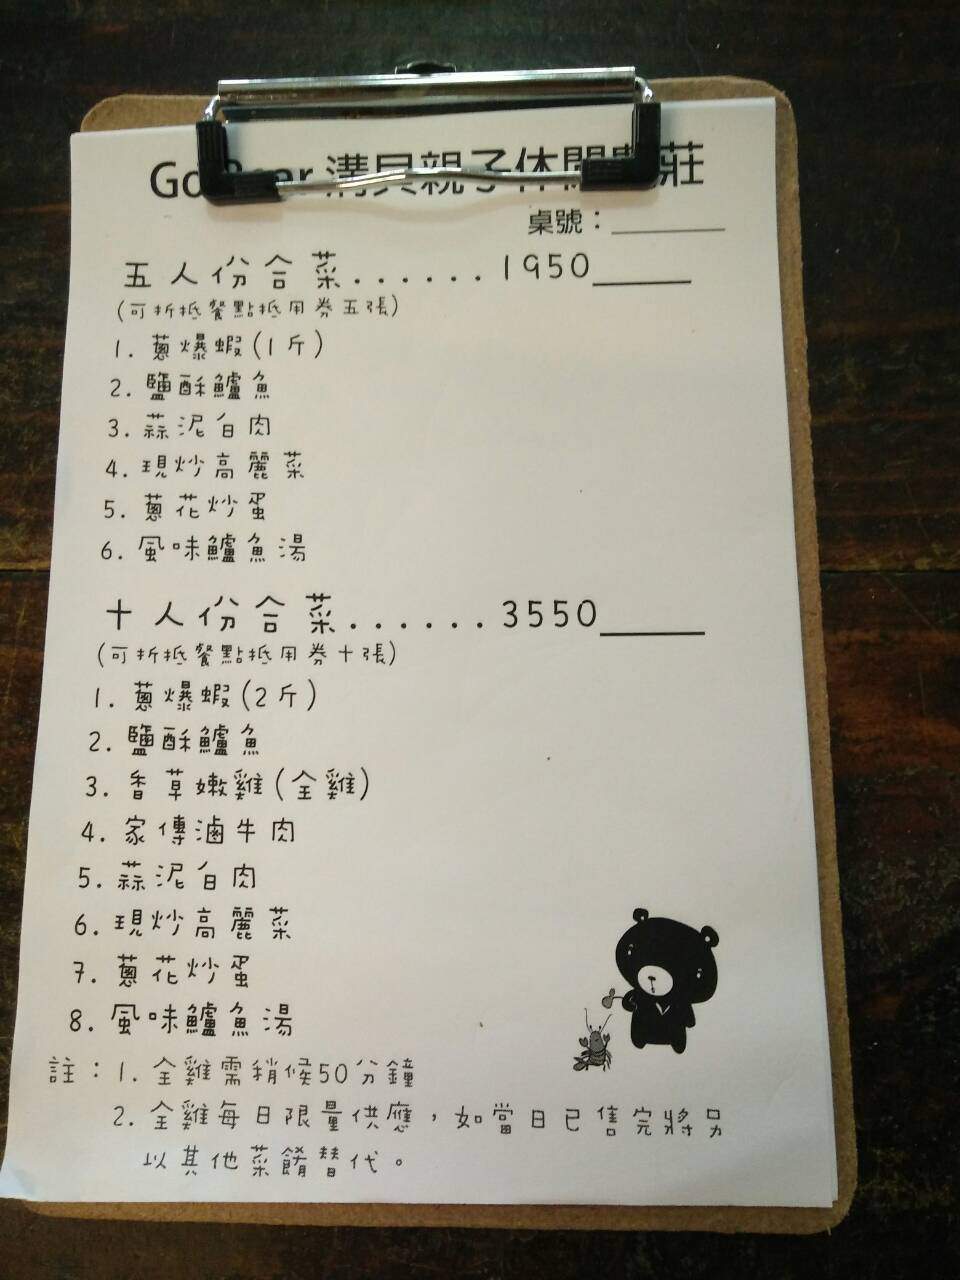 溝貝親子休閒莊
桌號：
五人份合菜......1950
(可折抵餐點抵用券五張)
1. 蔥爆蝦(1斤)
2. 鹽酥鱸魚
3. 蒜泥白肉
4. 現炒高麗菜
5. 蔥花炒蛋
6. 風味鱸魚湯
十人份合菜......3550
(可折抵餐點抵用券十張)
1. 蔥爆蝦(2斤)
2. 鹽酥鱸魚
3. 香草嫩雞(全雞)
4. 家傳滷牛肉
5. 蒜泥白肉
6. 現炒高麗菜
7. 蔥花炒蛋
8. 風味鱸魚湯
註：1. 全雞需稍候50分鐘
2. 全雞每日限量供應，如當日已售完將另
以其他菜餚替代。